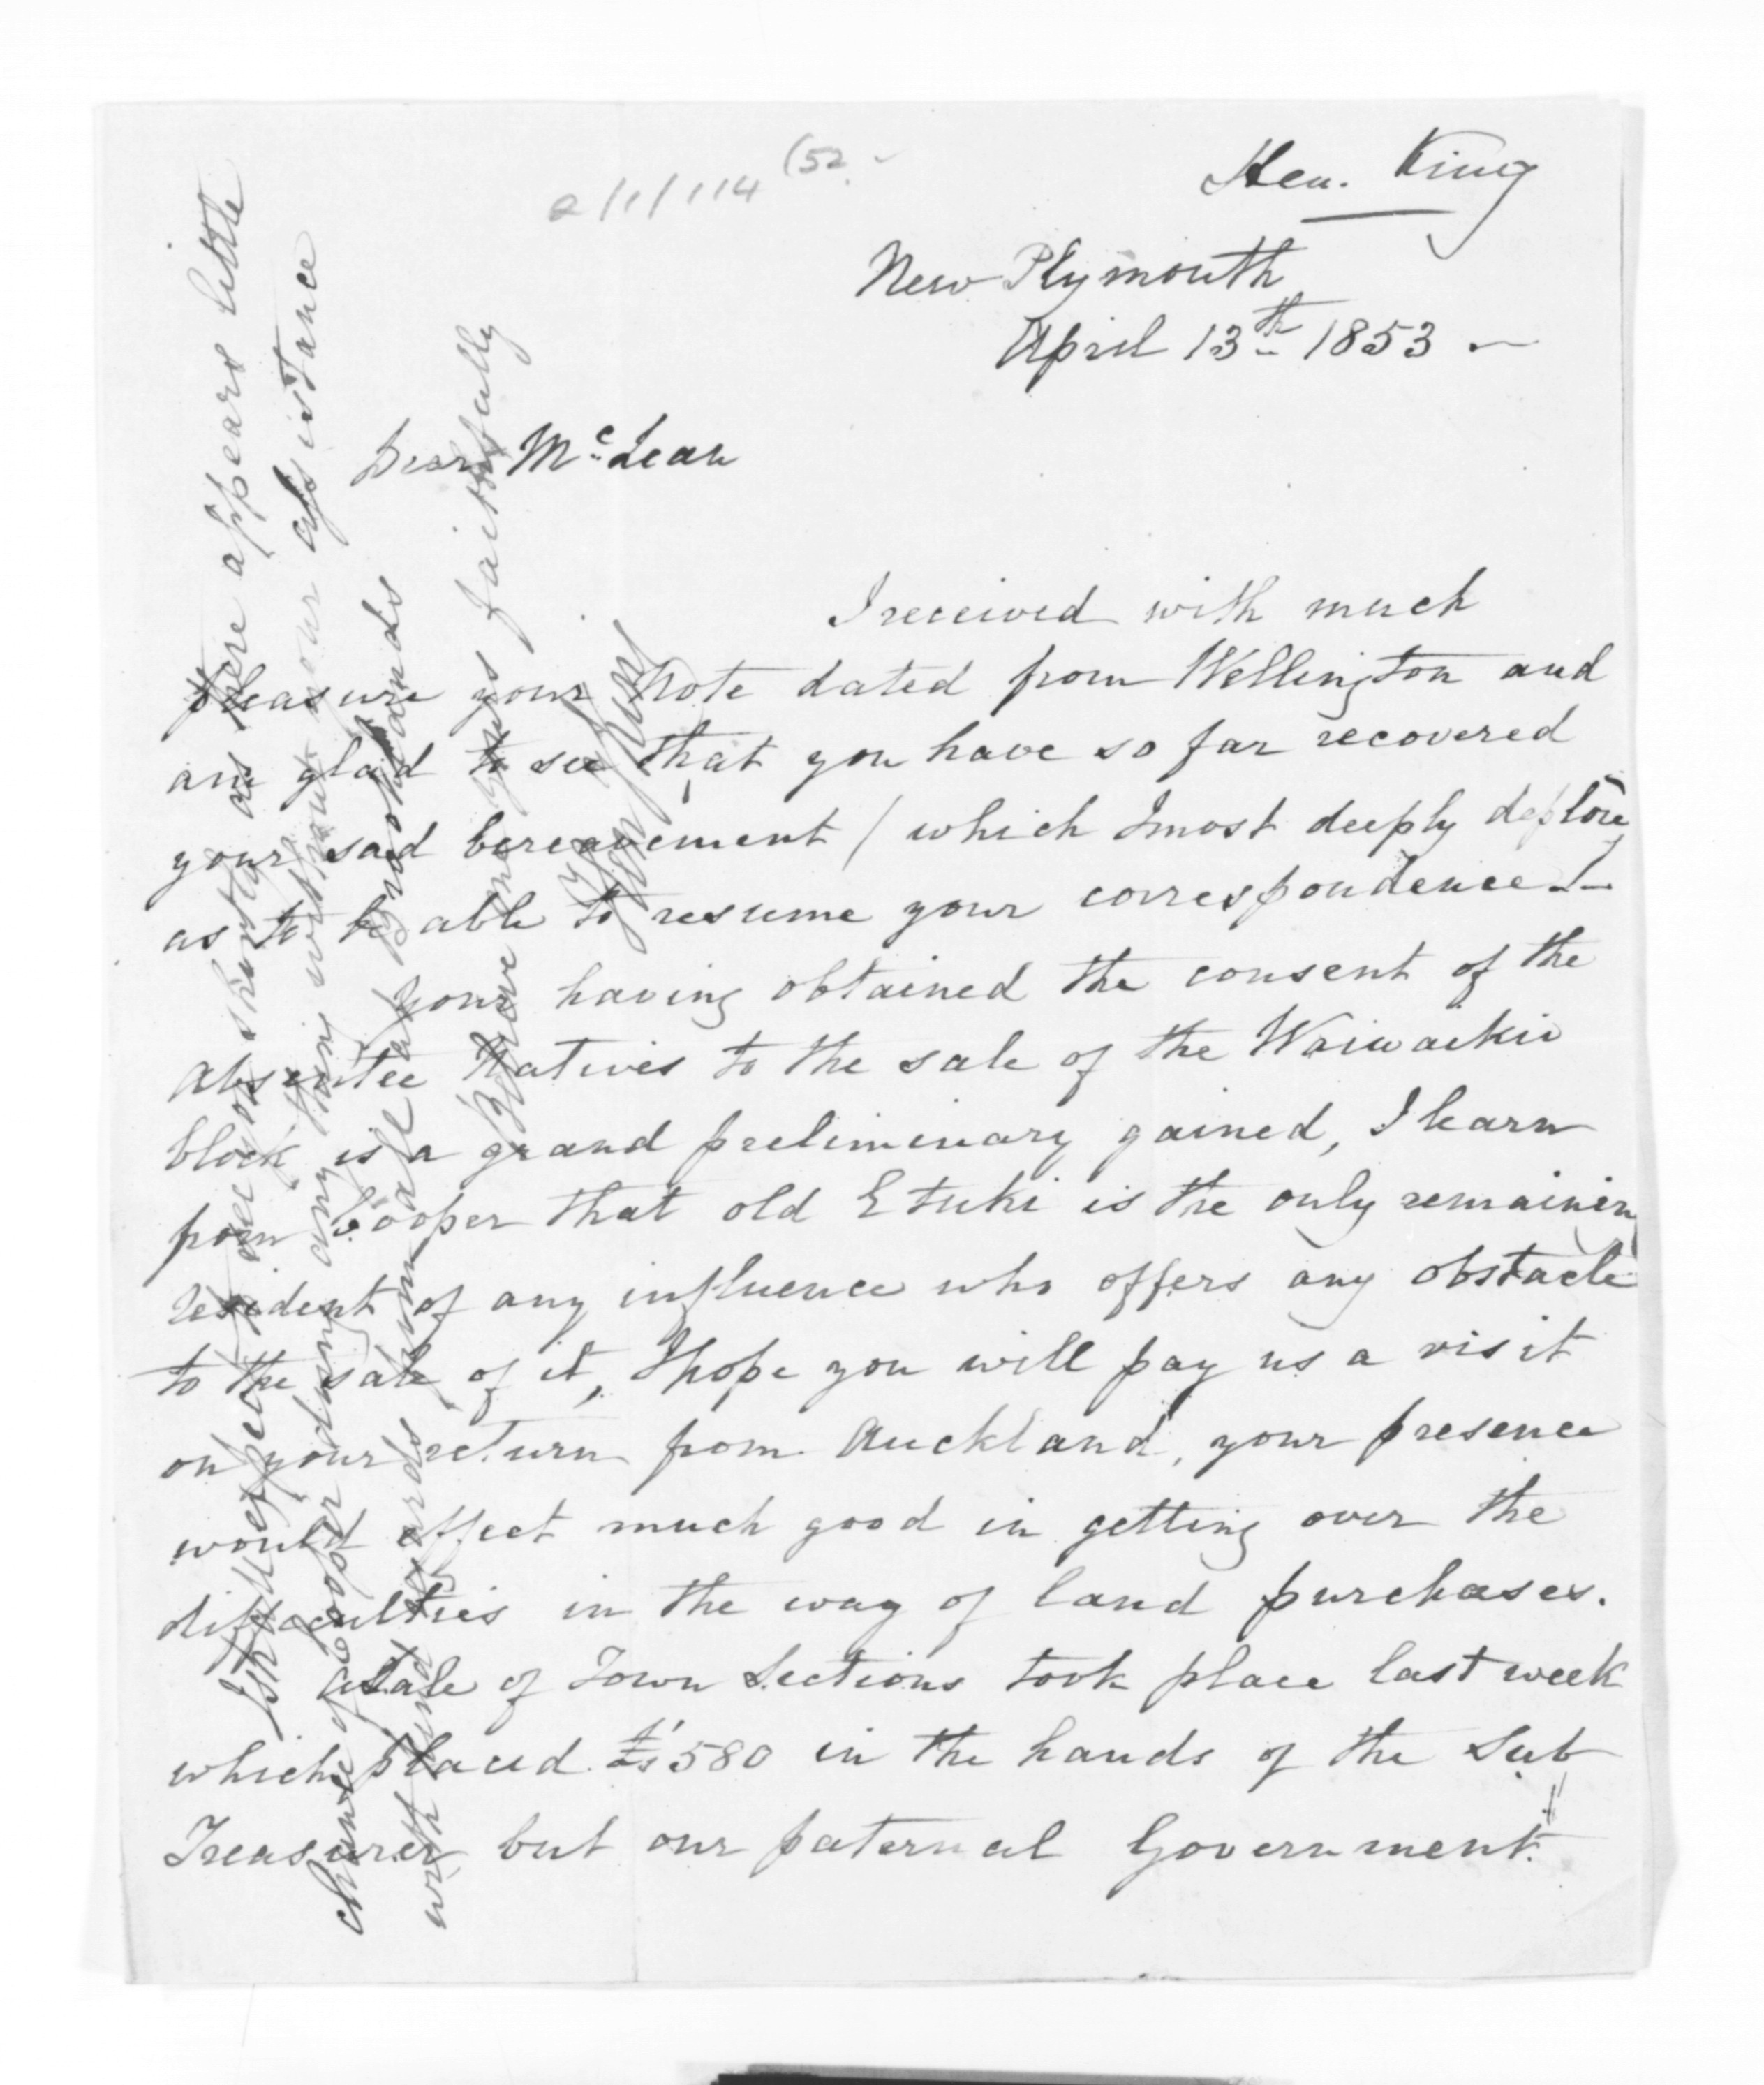 2/1/114 (52.
Hen. King
New Plymouth
April 13th 1853 -
Dear McLean
I received with much
pleasure your Note dated from Wellington and
am glad to see that you have so far recovered
your sad bereavement / which I most deeply deplore
as to be able to resume your correspondence /-
your having obtained the consent of the
absentee Natives to the sale of the Waiwaikio
block is a grand preliminary gained, I learn
from Cooper that old E tuki is the only remaining
resident of any influence who offers any obstacle
to the sale of it, I hope you will pay us a visit
on your return from Auckland, your presence
would effect much good in getting over the
difficulties in the way of land purchases.
a Sale of Town Sections took place last week
which placed £'s 580 in the hands of the Sub
Treasurer but our paternal Government
I shall expect to see you shortly as there appears little
chance of Cooper doing any thing without your assistance
with kind regards from all at Brooklands
Believe me yours faithfully
Hen King